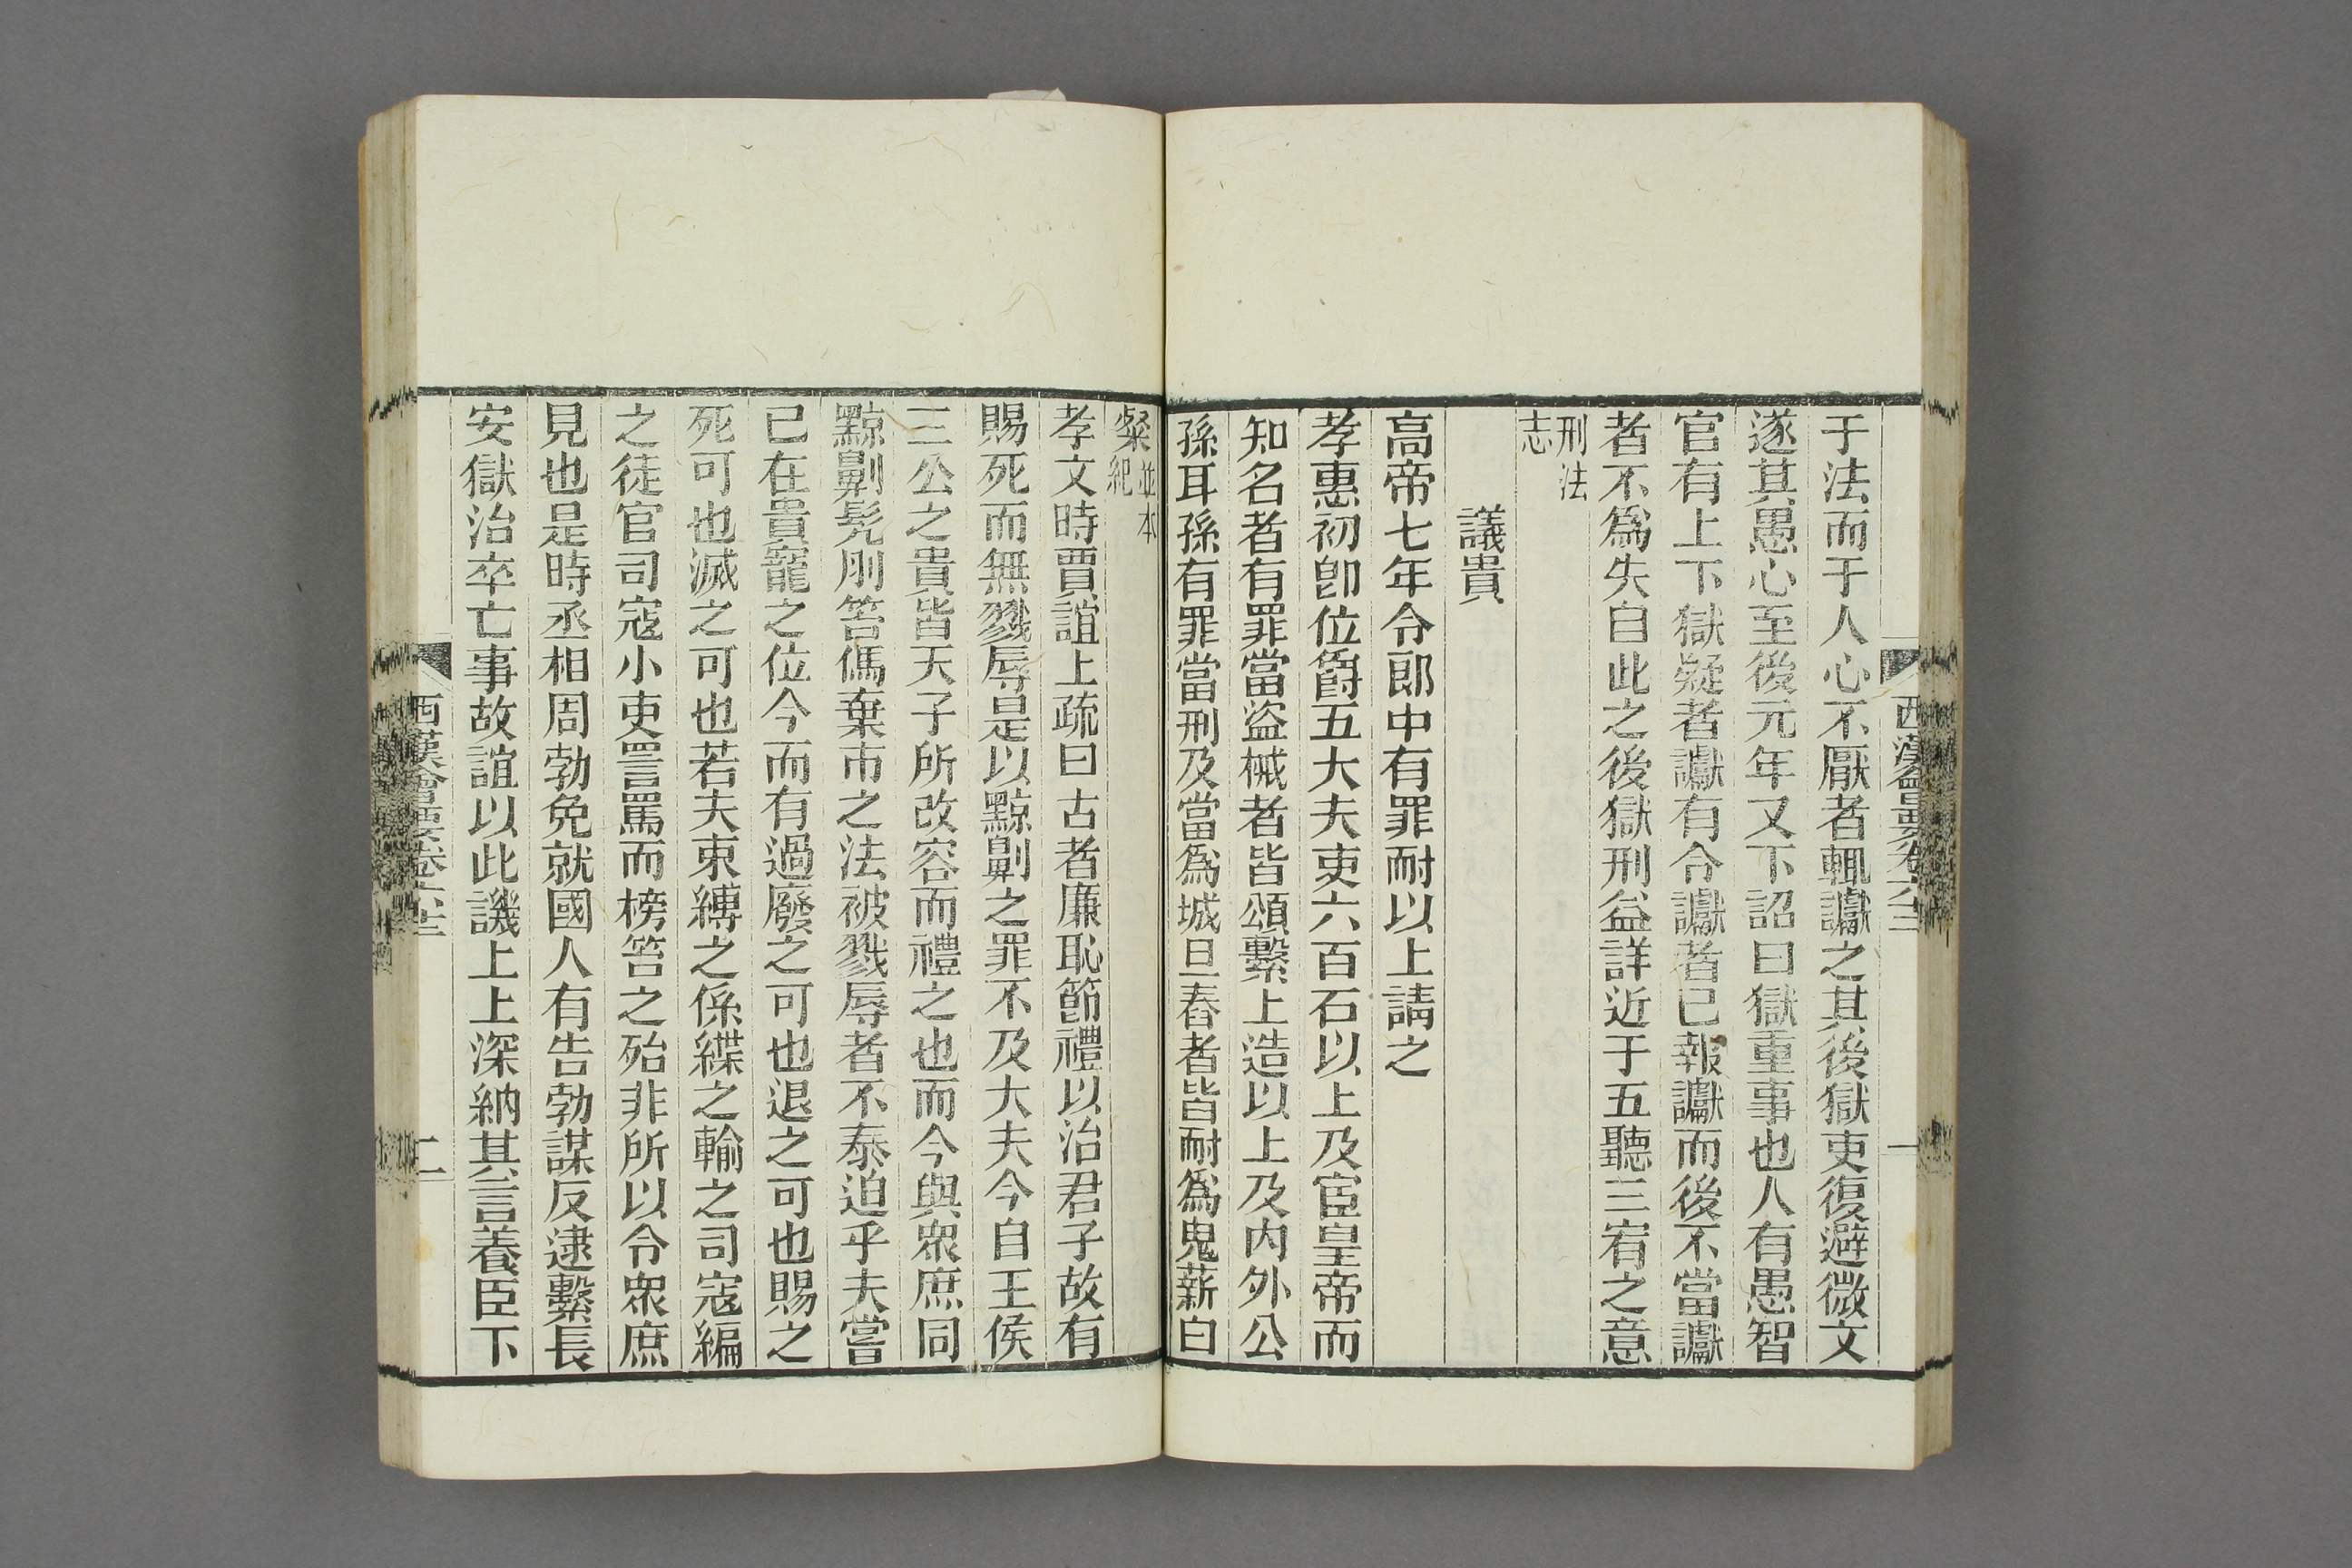 西漢會要卷六十三
一
于法而于人心不厭者輒讞之其後獄吏復避微文
遂其愚心至後元年又下詔曰獄重事也人有愚智
官有上下獄疑者讞有令讞者已報讞而後不當讞
者不爲失自此之後獄刑益詳近于五聽三宥之意
刑法
志
議貴
高帝七年令郎中有罪耐以上請之
孝惠初卽位爵五大夫吏六百石以上及宦皇帝而
知名者有罪當盜械者皆頌繫上造以上及內外公
孫耳孫有罪當刑及當爲城旦舂者皆耐爲鬼薪白
粲並本
紀
孝文時賈誼上疏曰古者廉恥節禮以治君子故有
賜死而無戮辱是以黥劓之罪不及大夫今自王侯
三公之貴皆天子所改容而禮之也而今與眾庶同
黥劓髡刖笞傌棄市之法被戮辱者不泰迫乎夫嘗
已在貴寵之位今而有過廢之可也退之可也賜之
死可也滅之可也若夫束縛之係緤之輸之司寇編
之徒官司寇小吏詈罵而榜笞之殆非所以令眾庶
見也是時丞相周勃免就國人有告勃謀反逮繫長
安獄治卒亡事故誼以此譏上上深納其言養臣下
西漢會要卷六十三
二